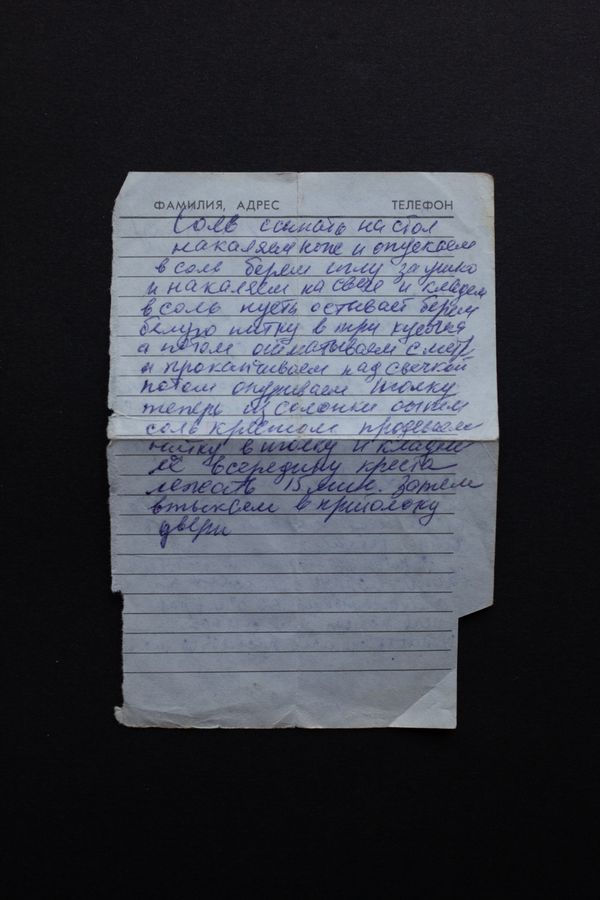 ФАМИЛИЯ, АДРЕС ТЕЛЕФОН
Соль ссыпать на стол
накаляем нож и опускаем
в соль берем иглу за ушко
и накаляем на свече и кладем
в соль пусть остывает берем
белую нитку в три
а потом отматываем с метр
и прокапчиваем над свечкой
потом иголку
теперь из солонки сыпем
соль крестом продеваем
нитку в иголку и кладем
её в середину креста
лежать 15 мин. Затем
втыкаем в притолоку
двери